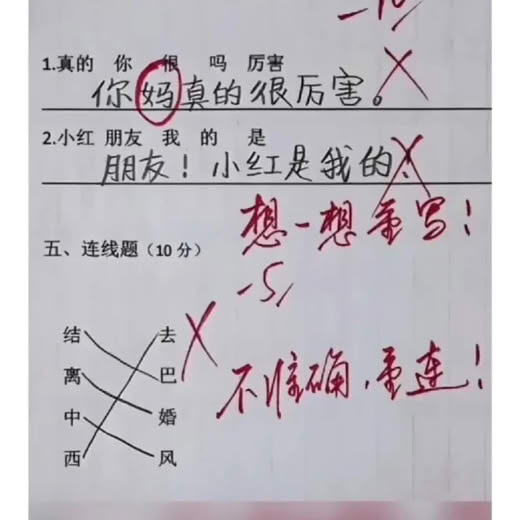 -10
1.真的 你 很 吗 厉害
你妈真的很厉害。
2.小红 朋友 我 的 是
朋友！小红是我的！
想一想重写！
五、连线题（10 分）
-5
结 去
离 巴
不准确，重连！
中 婚
西 风